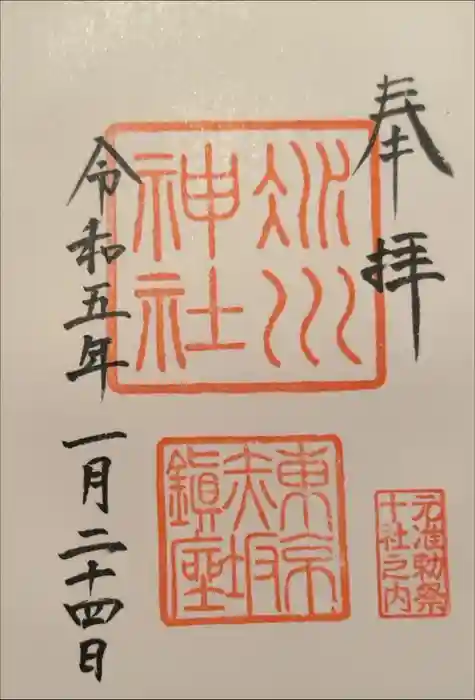 奉拝
氷川
神社
東京
赤坂
鎮座
元准勅祭
十社之内
令和五年一月二十四日